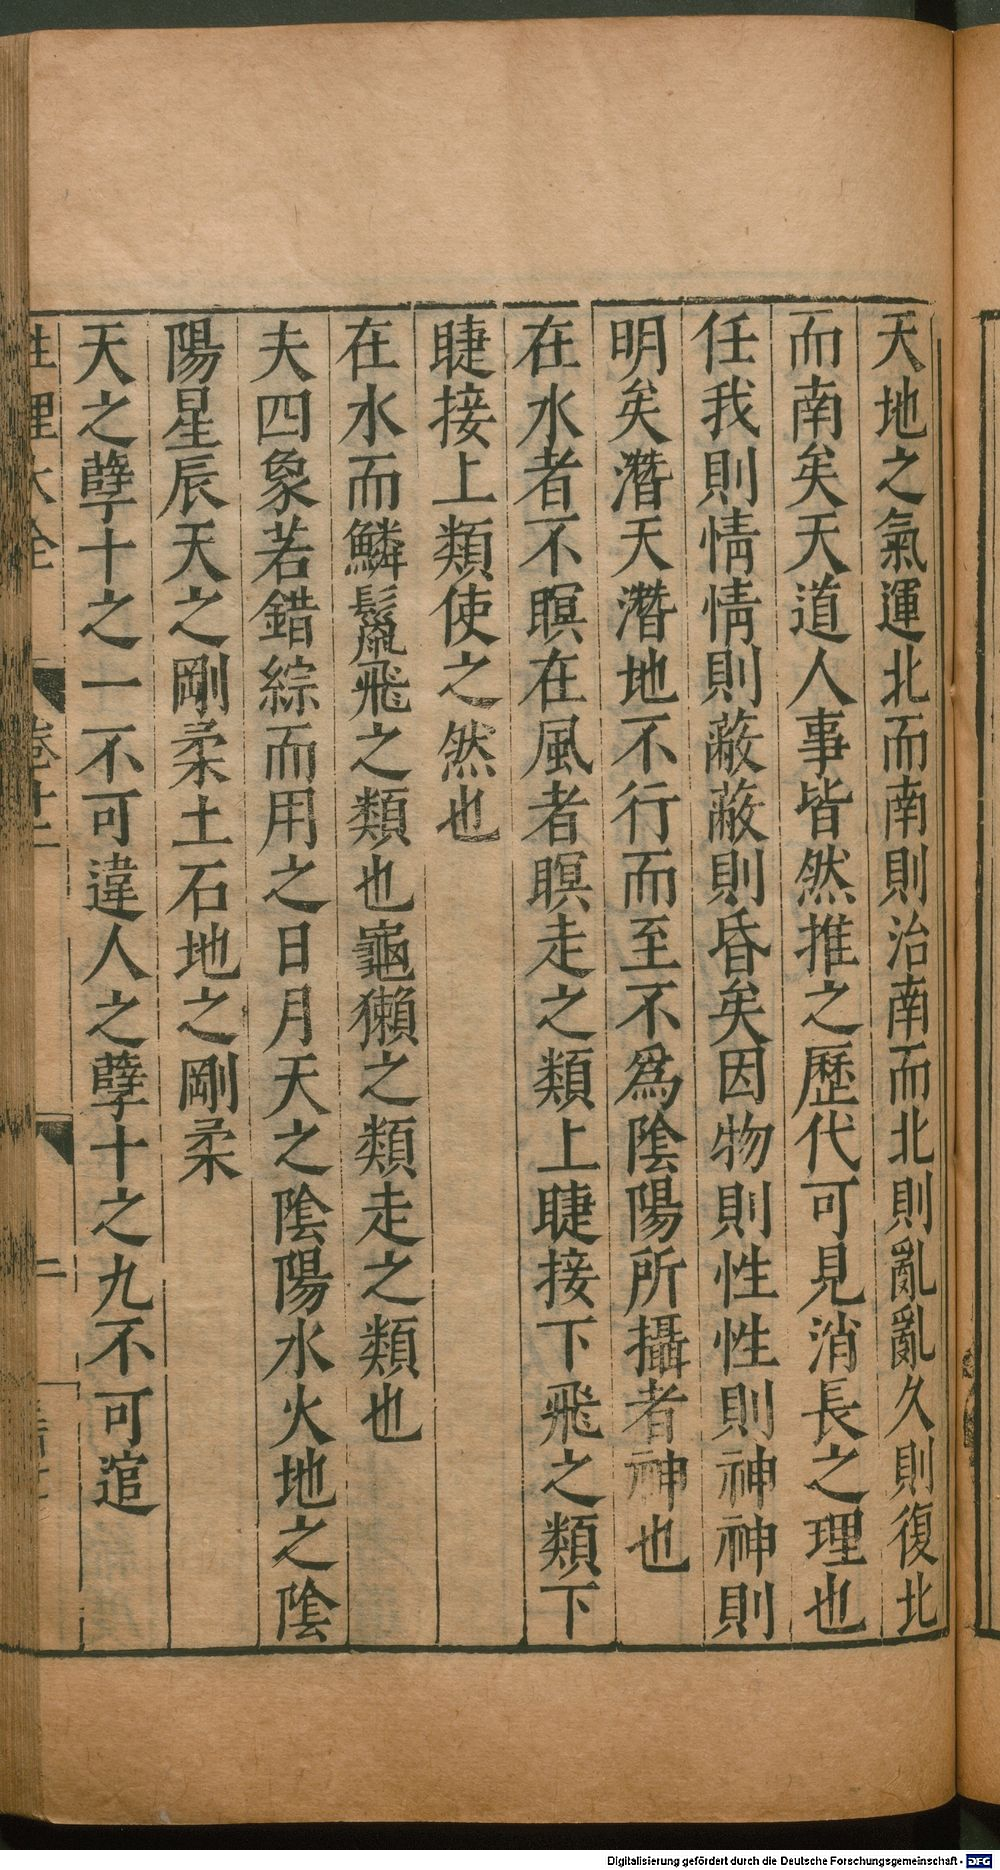 天地之氣運北而南則治南而北則亂亂久則復北
而南矣天道人事皆然推之歷代可見消長之理也
任我則情情則蔽蔽則昏矣因物則性性則神神則
明矣潛天潛地不行而至不爲陰陽所攝者神也
在水者不瞑在風者瞑走之類上睫接下飛之類下
睫接上類使之然也
在水而鱗鬣飛之類也龜獺之類走之類也
夫四象若錯綜而用之日月天之陰陽水火地之陰
陽星辰天之剛柔土石地之剛柔
天之孽十之一不可違人之孽十之九不可逭
性理大全 卷十二 二
Digitalisierung gefördert durch die Deutsche Forschungsgemeinschaft - DFG